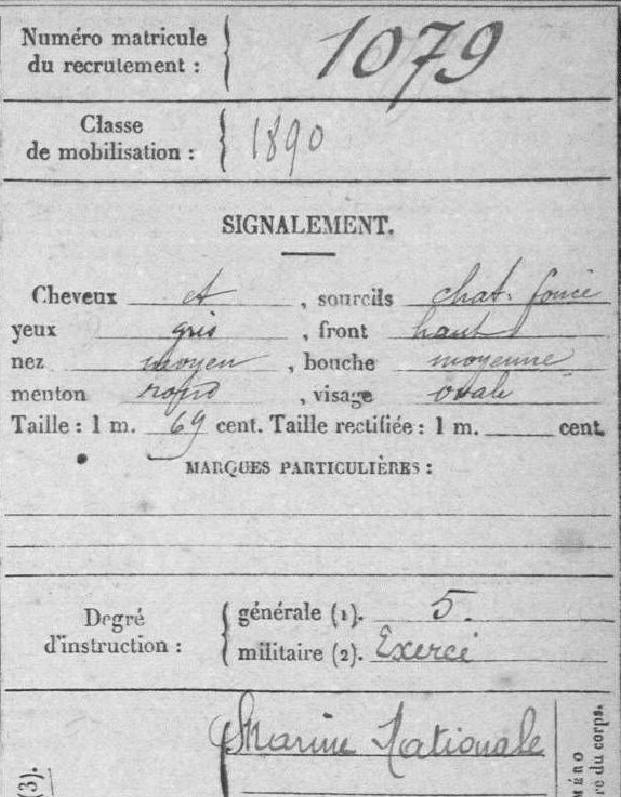 Numéro matricule
du recrutement : 1079
Classe
de mobilisation : 1890
SIGNALEMENT.
Cheveux et , sourcils chat. foncé
yeux gris , front haut
nez moyen , bouche moyenne
menton rond , visage ovale
Taille : 1 m. 69 cent. Taille rectifiée : 1 m. cent.
MARQUES PARTICULIÈRES :
Degré
d'instruction :
générale (1). 5.
militaire (2). Exercé
Marine Nationale
(3).
MÉRO
re du corps.